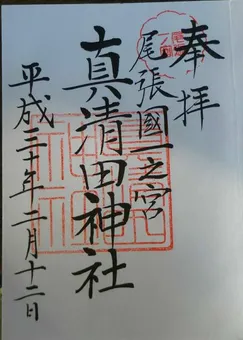 奉拝
尾張國一之宮
真清田神社
平成三十年二月十二日